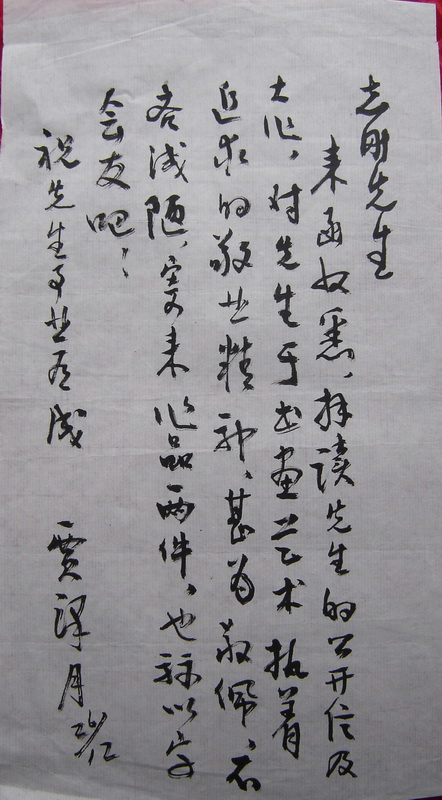 志刚先生
来函收悉、拜读先生的公开信及
大作，对先生于书画艺术执着
追求的敬业精神、甚为敬佩、不
吝浅陋、寄来作品两件，也称以字
会友吧！
祝先生事业有成
贾泽月